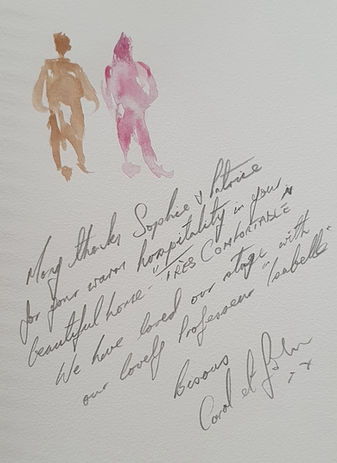 Many thanks Sophie & Patrice
for your warm hospitality in your
beautiful home - "TRÈS COMFORTABLE"
We have loved our stage with
our lovely Professeur "Isabelle"
Bisous
Carol et John
xx